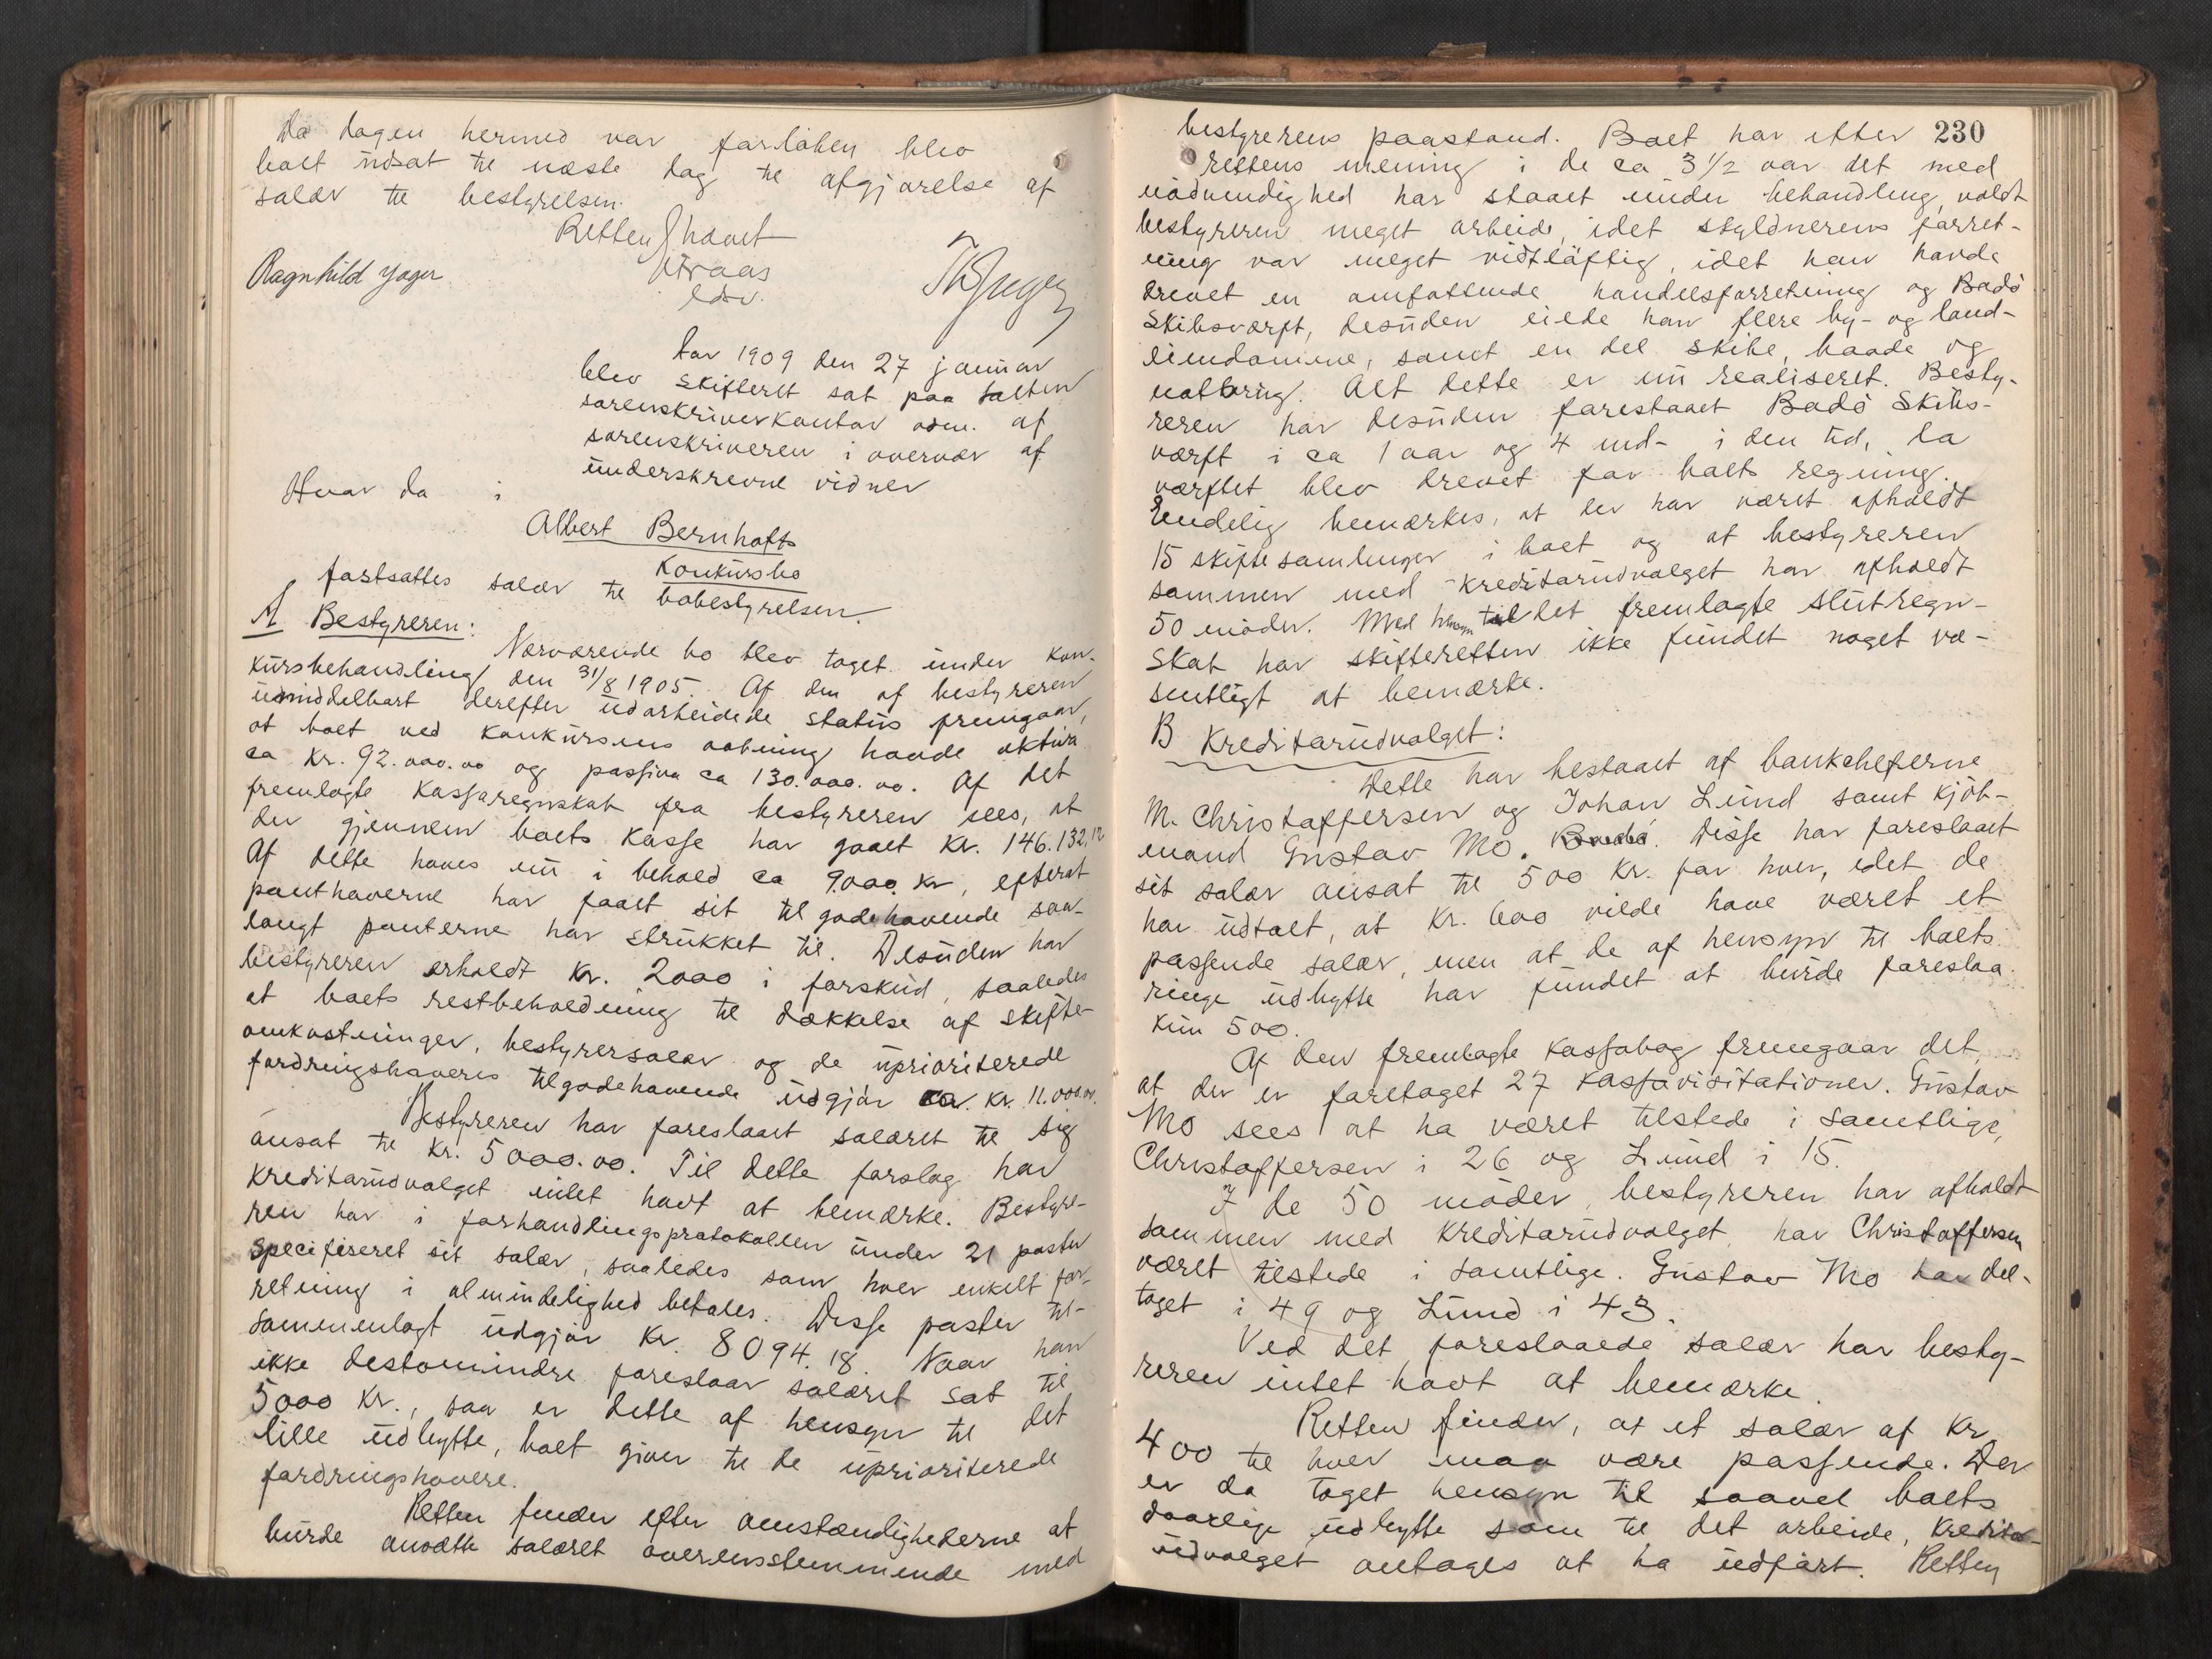 Da dagen hermed var forløben blev
boet udsat til næste dag til afgjørelse af
salær til bestyrelsen.
Retten hævet
Ragnhild Jager
Edsv.
Aar 1909 den 27 januar
blev skifteret sat paa Salten
sorenskriverkontor adm. af
sorenskriveren i overvær af
underskrevne vidner
Hvor da i
Albert Bernhofts
Konkursbo
fastsattes salær til bobestyrelsen.
A Bestyreren:
Nærværende bo blev taget under kon-
kursbehandling den 31/8 1905. Af den af bestyreren
umiddelbart derefter udarbeidede status fremgaar,
at boet ved konkursens aabning havde aktiva
ca kr. 92.000.00 og passiva ca 130.000.00. Af det
fremlagte kassaregnskab fra bestyreren sees, at
der gjennem boets kasse har gaaet kr. 146.132,12
Af dette haves nu i behold ca 9000 kr, efterat
panthaverne har faaet sit tilgodehavende saa-
langt panterne har strukket til. Desuden har
bestyreren erholdt kr. 2000 i forskud, saaledes
at boets restbeholdning til dækkelse af skifte-
omkostninger, bestyrersalær og de uprioriterede
fordringshaveres tilgodehavende udgjør ca. kr. 11.000.00.
Bestyreren har foreslaaet salæret til sig
ansat til kr. 5000.00. Til dette forslag har
kreditorudvalget intet havt at bemærke. Bestyre-
ren har i forhandlingsprotokollen under 21 poster
specifiseret sit salær, saaledes som hver enkelt for-
retning i almindelighed betales. Disse poster til-
sammenlagt udgjør kr. 8094.18. Naar han
ikke destomindre foreslaar salæret sat til
5000 kr., saa er dette af hensyn til det
lille udbytte, boet giver til de uprioriterede
fordringshavere.
Retten finder efter omstændighederne at
burde ansætte salæret overensstemmende med
230
bestyrerens paastand. Boet har efter
rettens mening i de ca 3 1/2 aar det med
nødvendighed har staaet under behandling, voldt
bestyreren meget arbeide, idet skyldnerens forret-
ning var meget vidtløftig, idet han havde
drevet en omfattende handelsforretning og Bodø
Skibsværft, desuden eiede han flere by- og land-
eiendomme, samt en del skibe, baade og
notbrug. Alt dette er nu realiseret. Besty-
reren har desuden forestaaet Bodø Skibs-
værft i ca 1 aar og 4 md- i den tid, da
værftet blev drevet for boets regning.
Endelig bemærkes, at der har været afholdt
15 skiftesamlinger i boet og at bestyreren
sammen med kreditorudvalget har afholdt
50 møder. Med hensyn til det fremlagte slutregn-
skab har skifteretten ikke fundet noget væ-
sentligt at bemærke.
B Kreditorudvalget:
Dette har bestaaet af bankcheferne
M. Christoffersen og Johan Lund samt kjøb-
mand Gustav Mo. Disse har foreslaaet
sit salær ansat til 500 kr. for hver, idet de
har udtalt, at kr. 600 vilde have været et
passende salær, men at de af hensyn til boets
ringe udbytte har fundet at burde foreslaa
kun 500.
Af den fremlagte kassabog fremgaar det,
at der er foretaget 27 kassavisitationer. Gustav
Mo sees at ha været tilstede i samtlige,
Christoffersen i 26 og Lund i 15.
I de 50 møder, bestyreren har afholdt
sammen med kreditorudvalget, har Christoffersen
været tilstede i samtlige. Gustav Mo har del-
taget i 49 og Lund i 43.
Ved det foreslaaede salær har besty-
reren intet havt at bemærke.
Retten finder, at et salær af kr
400 til hver maa være passende. Der
er da taget hensyn til saavel boets
daarlige udbytte som til det arbeide, kreditor-
udvalget antages at ha udført. Retten